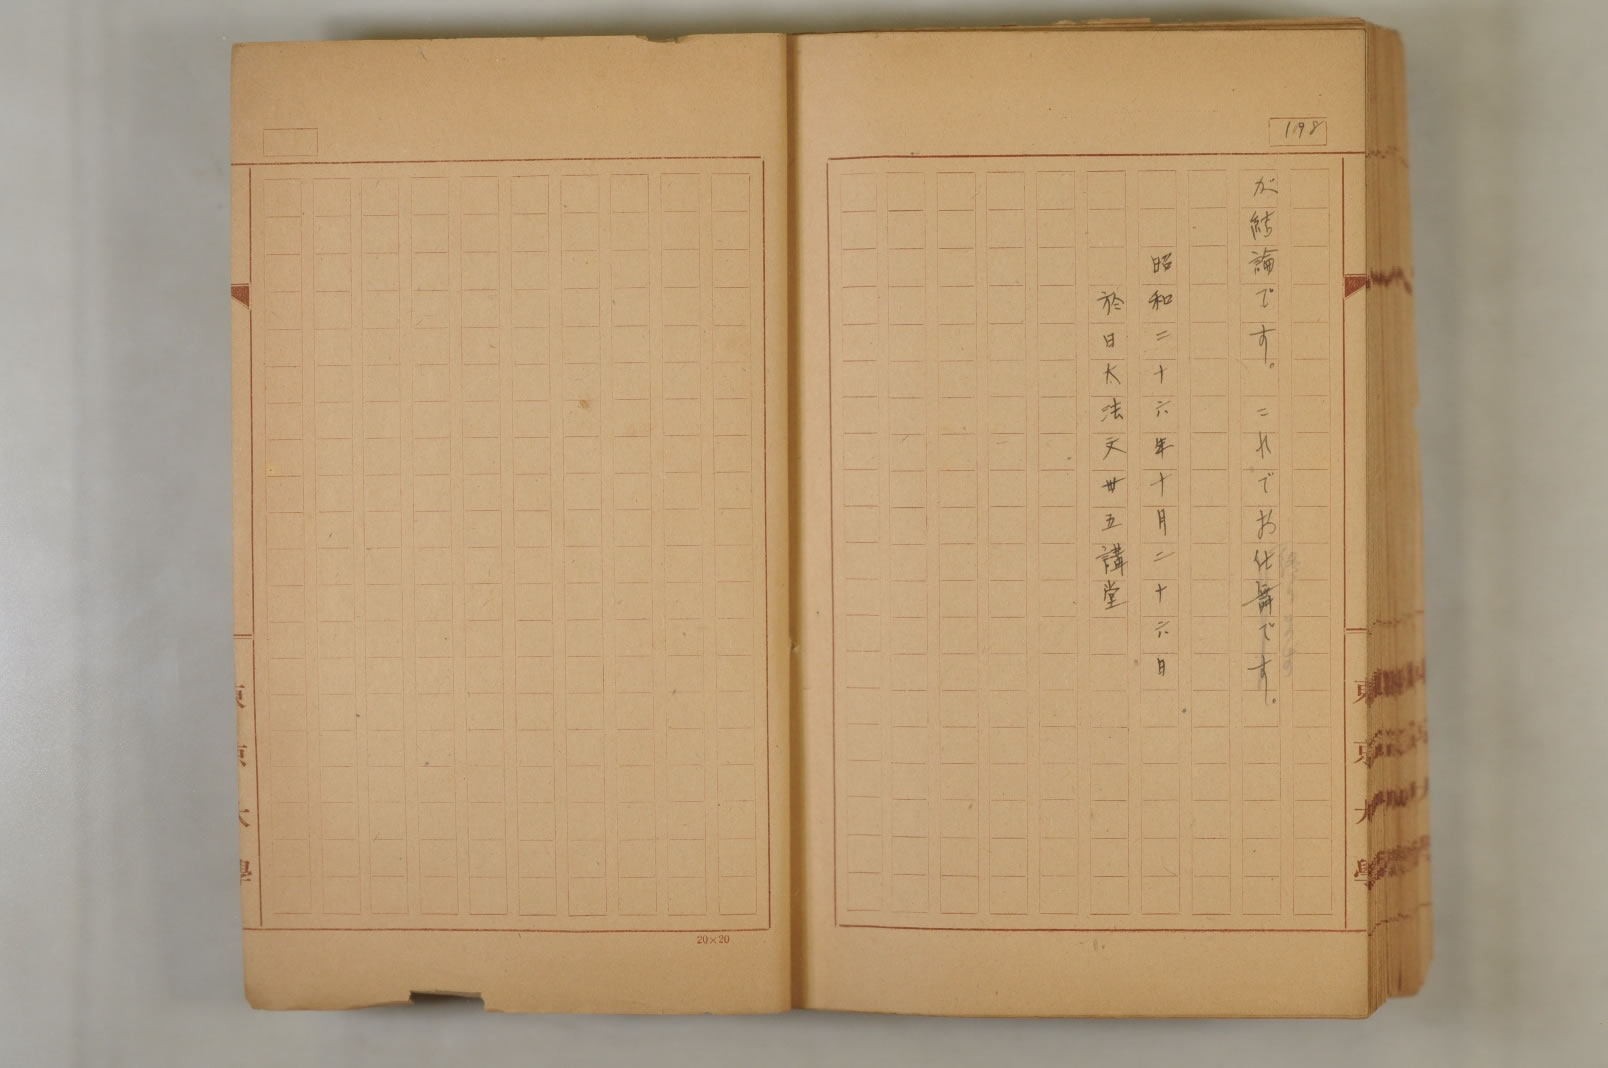 198
が結論です。これでお仕舞です。
昭和二十六年十月二十六日
於日大法文卅五講堂
東京大學
東京大學
20×20